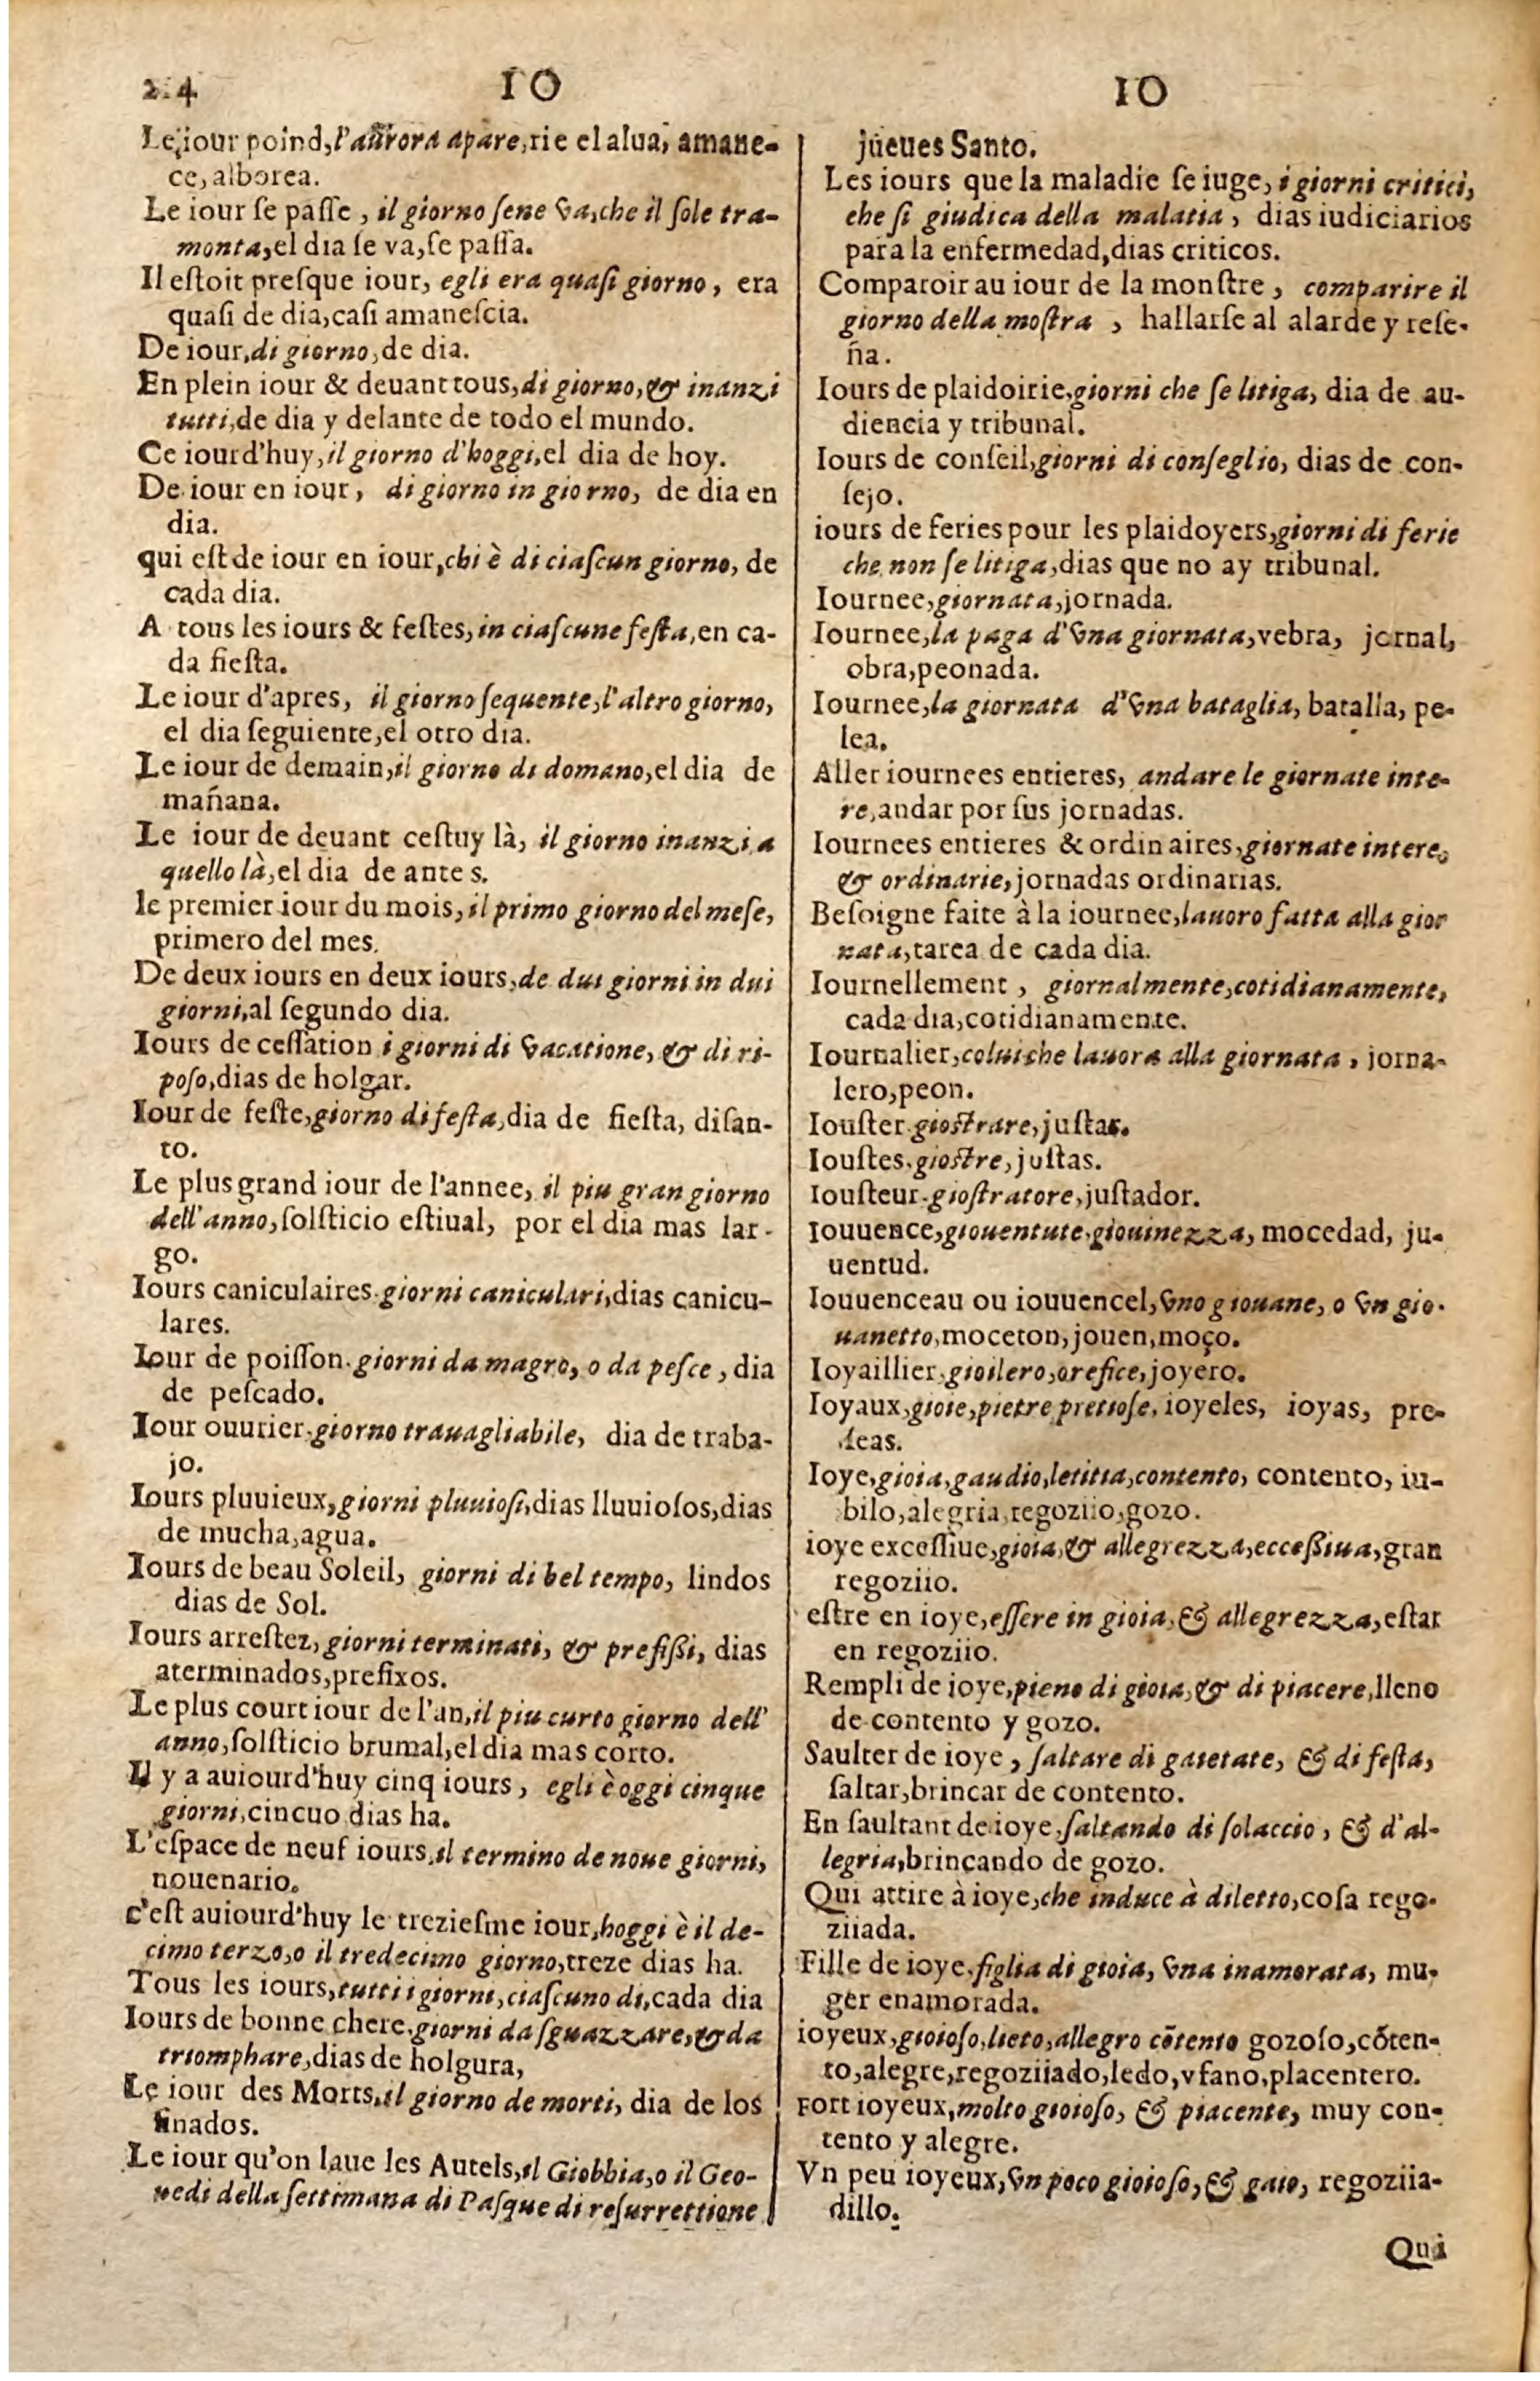 IO
IO
Le iour poind, l'aurora apare, rie el alua, amane-
ce, alborea.
Le iour ſe paſſe, il giorno ſene va, che il ſole tra-
monta, el dia ſe va, ſe paſſa.
Il eſtoit preſque iour, egli era quaſi giorno, era
quaſi de dia, caſi amaneſcia.
De iour, di giorno, de dia.
En plein iour & deuant tous, di giorno, & inanzi
tutti, de dia y delante de todo el mundo.
Ce iourd'huy, il giorno d'hoggi, el dia de hoy.
De iour en iour, di giorno in giorno, de dia en
dia.
qui eſt de iour en iour, chi è di ciaſcun giorno, de
cada dia.
A tous les iours & feſtes, in ciaſcune feſta, en ca-
da fieſta.
Le iour d'apres, il giorno ſequente, l'altro giorno,
el dia ſeguiente, el otro dia.
Le iour de demain, il giorno di domano, el dia de
mañana.
Le iour de deuant ceſtuy là, il giorno inanzi a
quello là, el dia de antes.
le premier iour du mois, il primo giorno del meſe,
primero del mes.
De deux iours en deux iours, de dui giorni in dui
giorni, al ſegundo dia.
Iours de ceſſation i giorni di vacatione, & di ri-
poſo, dias de holgar.
Iour de feſte, giorno di feſta, dia de fieſta, diſan-
to.
Le plus grand iour de l'annee, il piu gran giorno
dell'anno, ſolſticio eſtiual, por el dia mas lar-
go.
Iours caniculaires. giorni caniculari, dias canicu-
lares.
Iour de poiſſon. giorni da magro, o da peſce, dia
de peſcado.
Iour ouurier. giorno trauagliabile, dia de traba-
jo.
Iours pluuieux, giorni pluuioſi, dias lluuioſos, dias
de mucha, agua.
Iours de beau Soleil, giorni di bel tempo, lindos
dias de Sol.
Iours arreſtez, giorni terminati, & prefißi, dias
aterminados, prefixos.
Le plus court iour de l'an, il piu curto giorno dell'
anno, ſolſticio brumal, el dia mas corto.
Il y a auiourd'huy cinq iours, egli è oggi cinque
giorni, cincuo dias ha.
L'eſpace de neuf iours, il termino de noue giorni,
nouenario.
c'eſt auiourd'huy le trezieſme iour, hoggi è il de-
cimo terzo, o il tredecimo giorno, treze dias ha.
Tous les iours, tutti i giorni, ciaſcuno di, cada dia
Iours de bonne chere. giorni da ſguazzare, & da
triomphare, dias de holgura,
Le iour des Morts, il giorno de morti, dia de los
finados.
Le iour qu'on laue les Autels, il Giobbia, o il Geo-
uedi della ſettimana di Paſque di reſurrettione
jueues Santo.
Les iours que la maladie ſe iuge, i giorni critici,
che ſi giudica della malatia, dias iudiciarios
para la enfermedad, dias criticos.
Comparoir au iour de la monſtre, comparire il
giorno della moſtra, hallarſe al alarde y reſe-
ña.
Iours de plaidoirie, giorni che ſe litiga, dia de au-
diencia y tribunal.
Iours de conſeil, giorni di conſeglio, dias de con-
ſejo.
iours de feries pour les plaidoyers, giorni di ferie
che non ſe litiga, dias que no ay tribunal.
Iournee, giornata, jornada.
Iournee, la paga d'vna giornata, vebra, jornal,
obra, peonada.
Iournee, la giornata d'vna bataglia, batalla, pe-
lea.
Aller iournees entieres, andare le giornate inte-
re, andar por ſus jornadas.
Iournees entieres & ordinaires, giornate intere,
& ordinarie, jornadas ordinarias.
Beſoigne faite à la iournee, lauoro fatta alla gior
nata, tarea de cada dia.
Iournellement, giornalmente, cotidianamente,
cada dia, cotidianamente.
Iournalier, colui che lauora alla giornata, jorna-
lero, peon.
Iouſter. gioſtrare, juſtar.
Iouſtes. gioſtre, juſtas.
Iouſteur. gioſtratore, juſtador.
Iouuence, giouentute, giouinezza, mocedad, ju-
uentud.
Iouuenceau ou iouuencel, vno giouane, o vn gio-
uanetto, moceton, jouen, moço.
Ioyaillier, gioilero, orefice, joyero.
Ioyaux, gioie, pietre pretioſe, ioyeles, ioyas, pre-
ſeas.
Ioye, gioia, gaudio, letitia, contento, contento, iu-
bilo, alegria, regoziio, gozo.
ioye exceſſiue, gioia, & allegrezza, ecceßiua, gran
regoziio.
eſtre en ioye, eſſere in gioia, & allegrezza, eſtar
en regoziio.
Rempli de ioye, pieno di gioia, & di piacere, lleno
de contento y gozo.
Saulter de ioye, ſaltare di gaietate, & di feſta,
ſaltar, brincar de contento.
En ſaultant de ioye, ſaltando di ſolaccio, & d'al-
legria, brincando de gozo.
Qui attire à ioye, che induce à diletto, coſa rego-
ziiada.
Fille de ioye, figlia di gioia, vna inamorata, mu-
ger enamorada.
ioyeux, gioioſo, lieto, allegro cõtento gozoſo, cõten-
to, alegre, regoziiado, ledo, vfano, placentero.
Fort ioyeux, molto gioioſo, & piacente, muy con-
tento y alegre.
Vn peu ioyeux, vn poco gioioſo, & gaio, regoziia-
dillo.
Qui